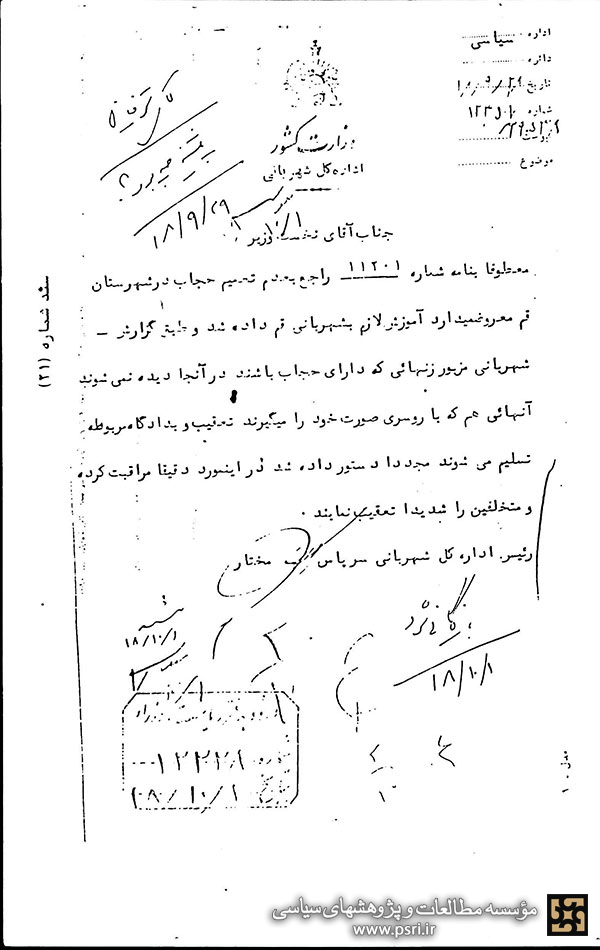 اداره سیاسی
دائره
تاریخ
شماره
پیوست
موضوع
وزارت کشور
اداره کل شهربانی
۱۸/۹/۲۹
جناب آقای نخست وزیر
معطوفا بنامه شماره ۱۱۲۰۱ راجع بعدم تعمیم حجاب درشهرستان
قم معروضمیدارد آموزش لازم بشهربانی قم داده شد و طبق گزارش –
شهربانی مزبور زنهائی که دارای حجاب باشند در آنجا دیده نمی شوند
آنهائی هم که با روسری صورت خود را میگیرند تعقیب و بدادگاه مربوطه
تسلیم می شوند مجددا دستور داده شد در اینمورد دقیقا مراقبت کرده
و متخلفین را شدیدا تعقیب نمایند .
رئیس اداره کل شهربانی سرپاس مختار
بایگانی شود
۱۸/۱۰/۱
۱۸/۱۰/۱
۱۲۲۲۸
سند شماره (۲۱)
مؤسسه مطالعات و پژوهشهای سیاسی
www.psri.ir